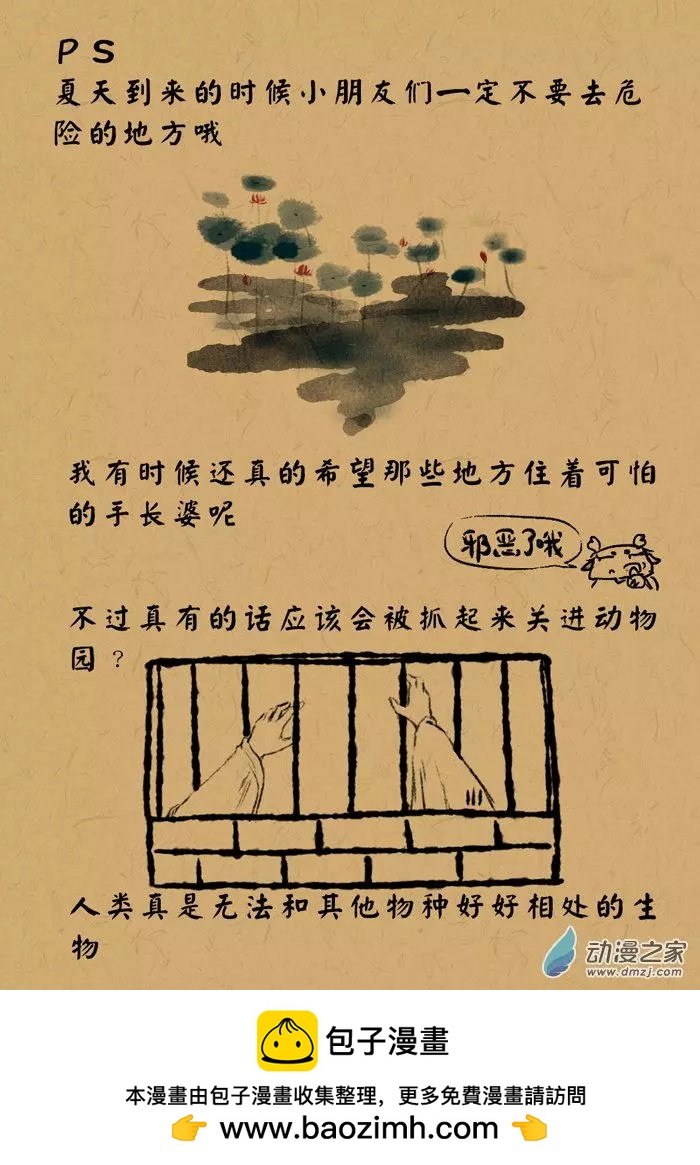 PS
夏天到来的时候小朋友们一定不要去危
险的地方哦
我有时候还真的希望那些地方住着可怕
的手长婆呢
邪恶了哦
不过真有的话应该会被抓起来关进动物
园？
人类真是无法和其他物种好好相处的生
物
动漫之家
www.dmzj.com
包子漫畫
本漫畫由包子漫畫收集整理，更多免費漫畫請訪問
👉 www.baozimh.com 👈